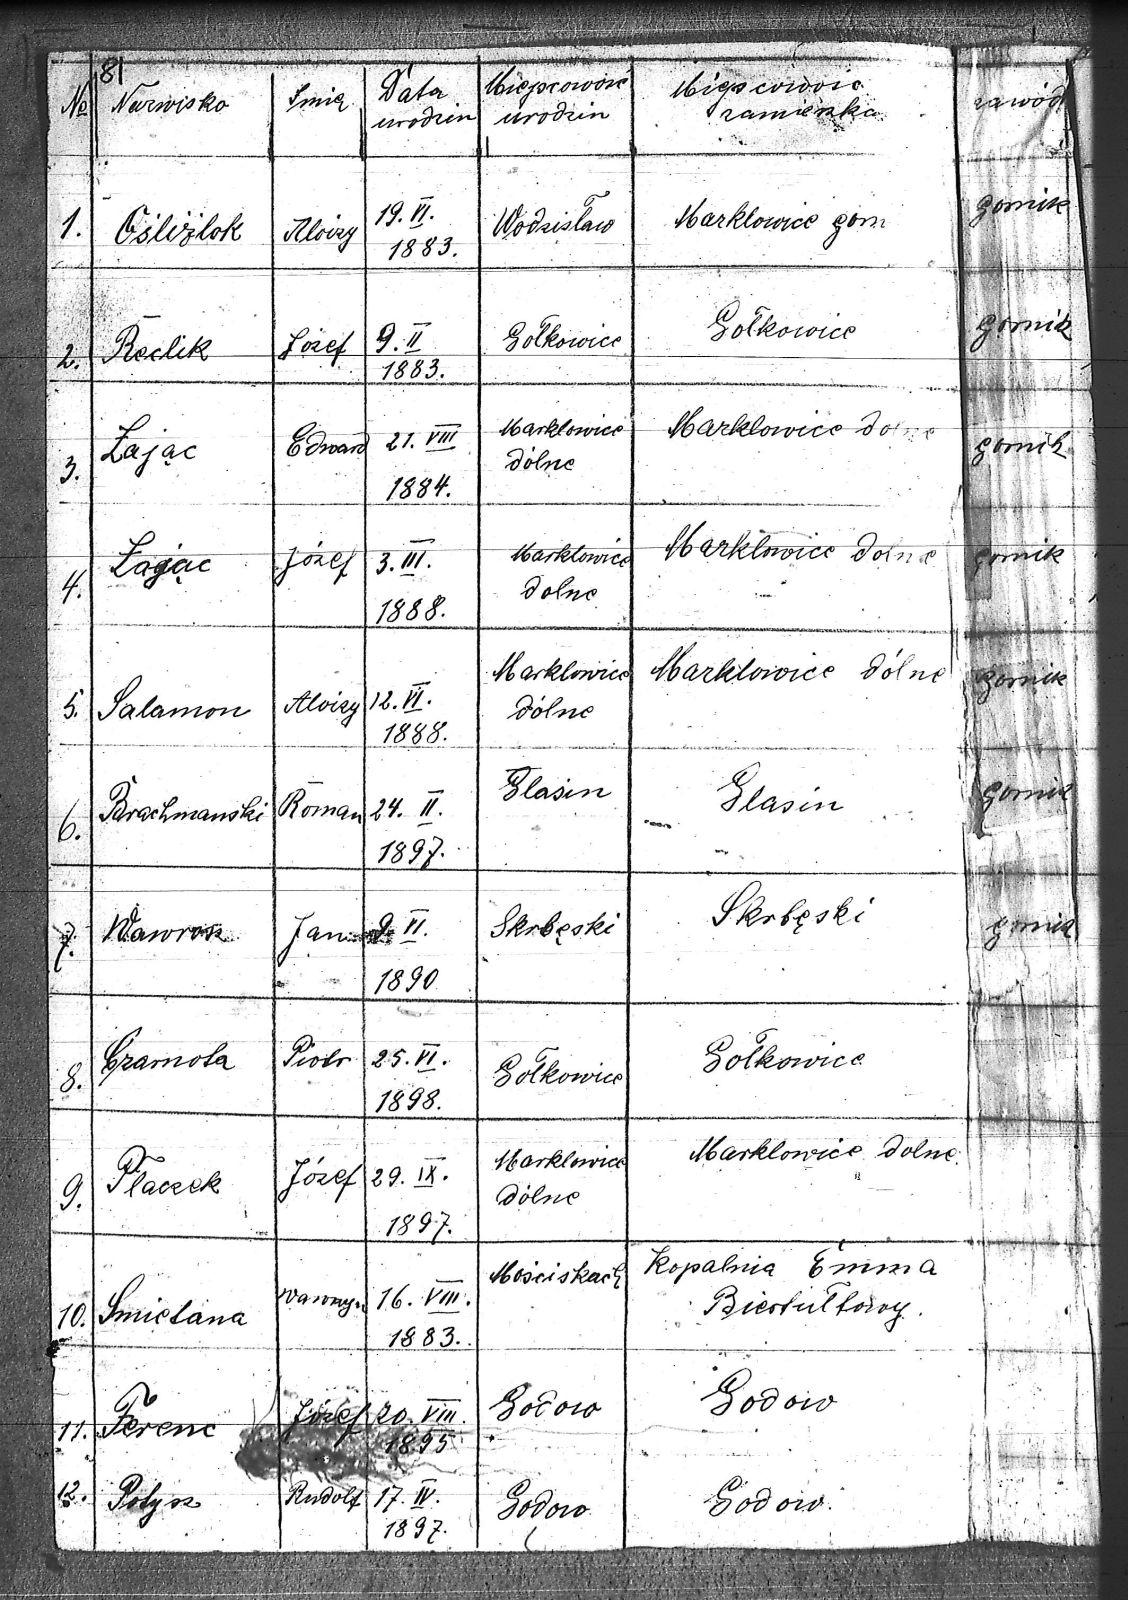 81
No Nazwisko Imię Data urodzin Miejscowość urodzin Miejscowość zamieszka zawód
1. Ośliźlok Aloizy 19. VI. 1883. Wodzisław Marklowice gorn gornik
2. Reclik Józef 9. II 1883. Gołkowice Gołkowice gornik
3. Zając Edward 21. VIII 1884. Marklowice dolne Marklowice dolne gornik
4. Zając Józef 3. III. 1888. Marklowice dolne Marklowice dolne gornik
5. Salamon Aloizy 12. VI. 1888. Marklowice dólne Marklowice dólne gornik
6. Brachmanski Roman 24. II. 1897. Glasin Glasin gornik
7. Wawrosz Jan 9. VI. 1890 Skrbęski Skrbęski gornik
8. Czarnota Piotr 25. VI. 1898. Gołkowice Gołkowice
9. Płaczek Józef 29. IX. 1897. Marklowice dólne Marklowice dolne.
10. Smietana 16. VIII. 1883. Mościskach Kopalnia Emma Biertułtowy.
11. Ferenc Józef 20. VIII. 1895 Godow Godow
12. Potysz Rudolf 17. IV. 1897. Godow Godow.